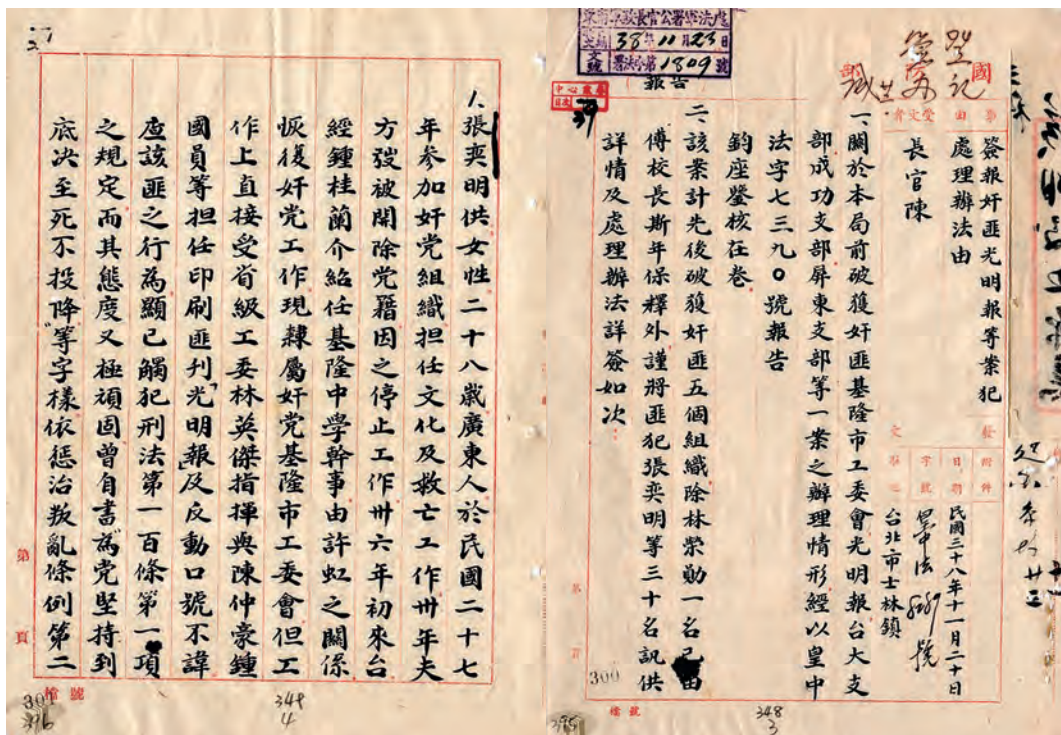 東南軍政長官公署軍法處
38年11月23日
文號 署法字第1809號
報告
登記
國
部
事由
簽報奸匪光明報等案犯
處理辦法由
受文者
長官陳
附件
發文
日期
民國三十八年十一月二十日
字號
皇中法 號
台北市士林鎮
一、關於本局前破獲奸匪基隆市工委會光明報台大支
部成功支部屏東支部等一案之辦理情形經以皇中
法字七三九〇號報告
鈞座鑒核在卷
二、該案計先後破獲奸匪五個組織除林榮勛一名已由
傅校長斯年保釋外謹將匪犯張奕明等三十名訊供
詳情及處理辦法詳簽如次：
300
檔號
348
3
395
1.張奕明供女性二十八歲廣東人於民國二十七
年參加奸党組織担任文化及救亡工作卅年夫
方弢被開除党籍因之停止工作卅六年初來台
經鍾桂蘭介紹任基隆中學幹事由許虹之關係
恢復奸党工作現隸屬奸党基隆市工委會但工
作上直接受省級工委林英傑指揮與陳仲豪鍾
國員等担任印刷匪刊「光明報」及反動口號不諱
查該匪之行為顯已觸犯刑法第一百條第一項
之規定而其態度又極頑固曾自書"為党堅持到
底決至死不投降"等字樣依懲治叛亂條例第二
第 頁
檔號
348
4
396